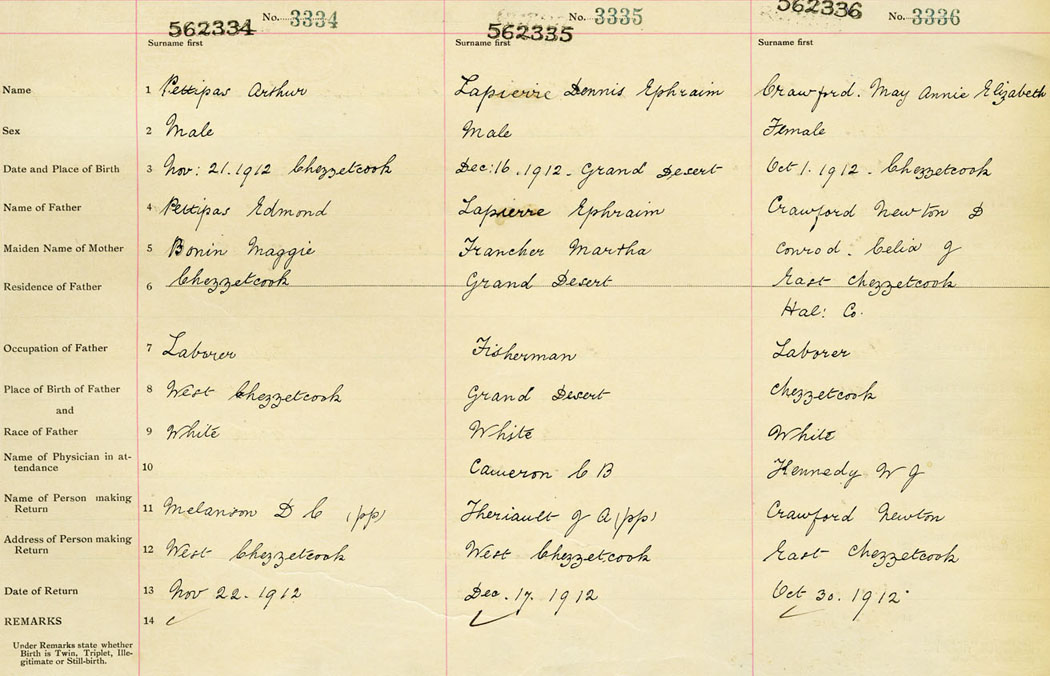 562334 No. 3334 562335 No. 3335 562336 No. 3336
Surname first Surname first Surname first
Name 1 Pettipas Arthur Lapierre Dennis Ephraim Crawford. May Annie Elizabeth
Sex 2 Male Male Female
Date and Place of Birth 3 Nov: 21. 1912 Chezzetcook Dec: 16. 1912. Grand Desert Oct 1. 1912. Chezzetcook
Name of Father 4 Pettipas Edmond Lapierre Ephraim Crawford Newton D
Maiden Name of Mother 5 Bonin Maggie Francher Martha Conrod. Celia J
Residence of Father 6 Chezzetcook Grand Desert East Chezzetcook
Hal: Co.
Occupation of Father 7 Laborer Fisherman Laborer
Place of Birth of Father 8 West Chezzetcook Grand Desert Chezzetcook
and
Race of Father 9 White White White
Name of Physician in at-
tendance 10 Cameron C B Kennedy W J
Name of Person making
Return 11 Melanson D C (pp) Theriault J A (pp) Crawford Newton
Address of Person making
Return 12 West Chezzetcook West Chezzetcook East Chezzetcook
Date of Return 13 Nov 22. 1912 Dec. 17. 1912 Oct 30. 1912
REMARKS 14
Under Remarks state whether
Birth is Twin, Triplet, Ille-
gitimate or Still-birth.